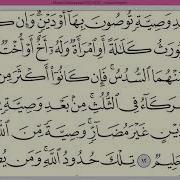 ـدِ وَصِيَّةٍ تُوصُونَ بِهَآ أَوْ دَيْنٍ ۗ وَإِن كَـ
ـورَثُ كَلَـٰلَةً أَوِ ٱمْرَأَةٌ وَلَهُۥٓ أَخٌ أَوْ أُخْتٌ
مِّنْهُمَا ٱلسُّدُسُ ۚ فَإِن كَانُوٓا۟ أَكْثَرَ مِن
ـرَكَآءُ فِى ٱلثُّلُثِ ۚ مِنۢ بَعْدِ وَصِيَّةٍ يُو
دَيْنٍ غَيْرَ مُضَآرٍّ ۚ وَصِيَّةً مِّنَ ٱللَّـ
ـلِيمٌ ١٢ تِلْكَ حُدُودُ ٱللَّهِ ۚ وَمَن يُطِـ